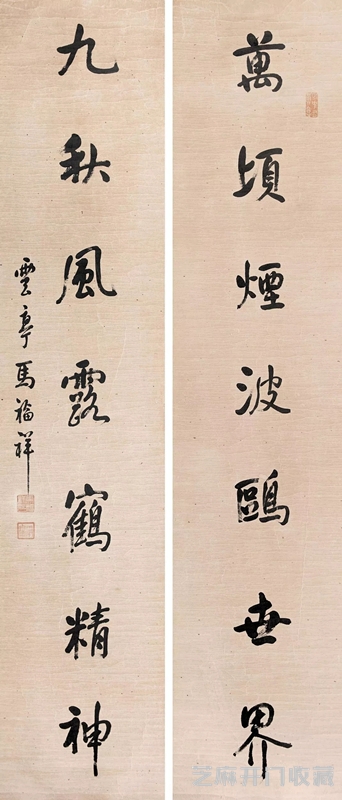 萬頃煙波鷗世界
九秋風露鶴精神
雲亭馬福祥
芝麻开门收藏